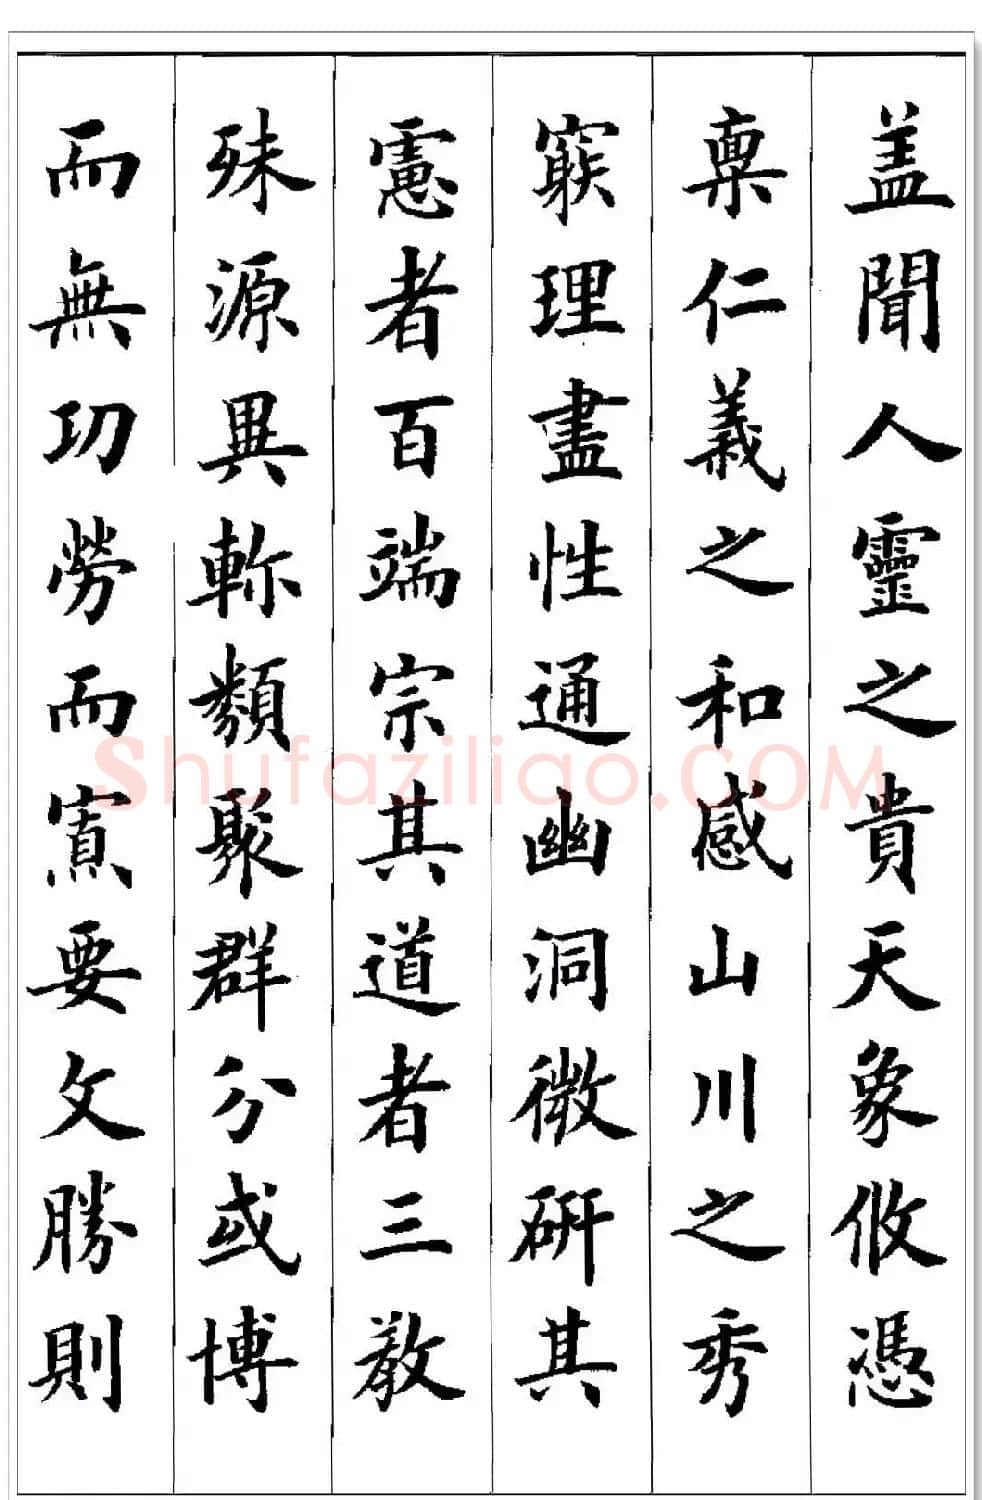 盖聞人靈之貴天象攸憑
禀仁義之和感山川之秀
窮理盡性通幽洞微研其
慮者百端宗其道者三教
殊源異軫類聚群分或博
而無功勞而寡要文勝則
Shufaziliao.COM